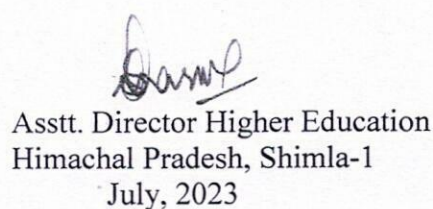 Asstt. Director Higher Education
Himachal Pradesh, Shimla-1
July, 2023